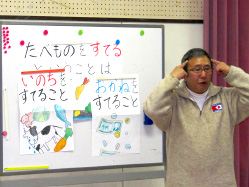 たべものをすてる
ということは
いのちを
すてること
おかねを
すてること